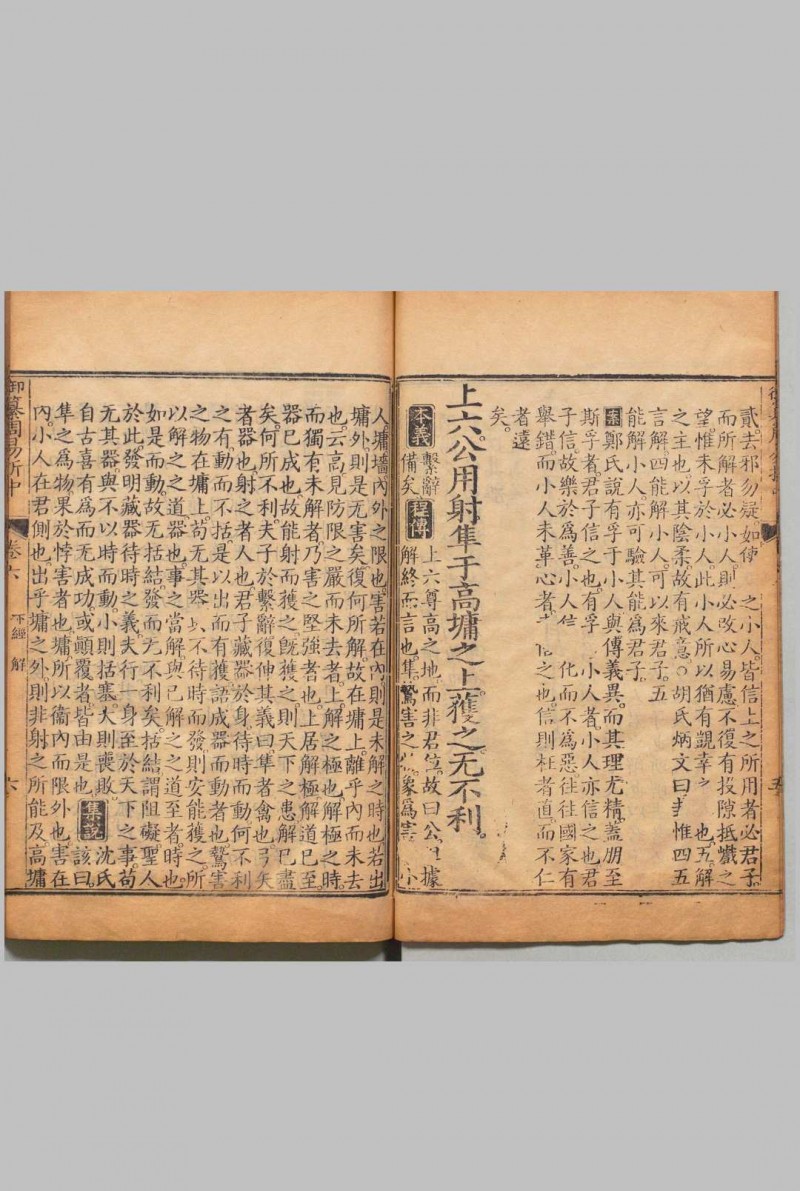 貳去邪勿疑如使 之小人皆信上之所用者必君子。
而所解者必小人則必改心易慮不復有投隙抵巇之
望惟未孚於小人此小人所以猶有覬幸 也五解
之主也以其陰柔故有戒意○胡氏炳文曰 惟四五
言解四能解小人可以來君子五
能解小人亦可驗其能爲君子
案鄭氏說有孚于小人與傳義異而其理尤精蓋朋至
斯孚者君子信之也有孚 小人者小人亦信之也君
子信故樂於爲善小人 化而不爲惡往往國家有
舉錯而小人未革心者 信之也信則枉者直而不仁
者遠
矣。
上六公用射隼于高墉之上獲之无不利。
本義 繫辭
備矣 程傳 上六尊高之地而非君位故曰公 據
解終而言也隼鷙害之 象爲害 小
人墉墻內外之限也害若在內則是未解之時也若出
墉外則是无害矣復何所解故在墉上離乎內而未去
也云高見防限之嚴而未去者上解之極也解極之時
而獨有未解者乃害之堅強者也上居解極解道已至
器已成也故能射而獲之旣獲之則天下之患解已盡
矣何所不利夫子於繫辭復伸其義曰隼者禽也弓矢
者器也射之者人也君子藏器於身待時而動何不利
之有動而不括是以出而有獲語成器而動者也鷙害
之物在墉上苟无其器 不待時而發則安能獲之所
以解之之道器也事之當解與已解之之道至者時也
如是而動故无括結發而无不利矣括結謂阻礙聖人
於此發明藏器待時之義夫行一身至於天下之事苟
无其器與不以時而動小則括塞大則喪敗
自古喜有爲而无成功或顛覆者皆由是也 集說 沈氏該曰
隼之爲物果於悖害者也墉所以衞內而限外也害在
內小人在君側也出乎墉之外則非射之所能及高墉
御纂周易折中 卷六 下經 解 六